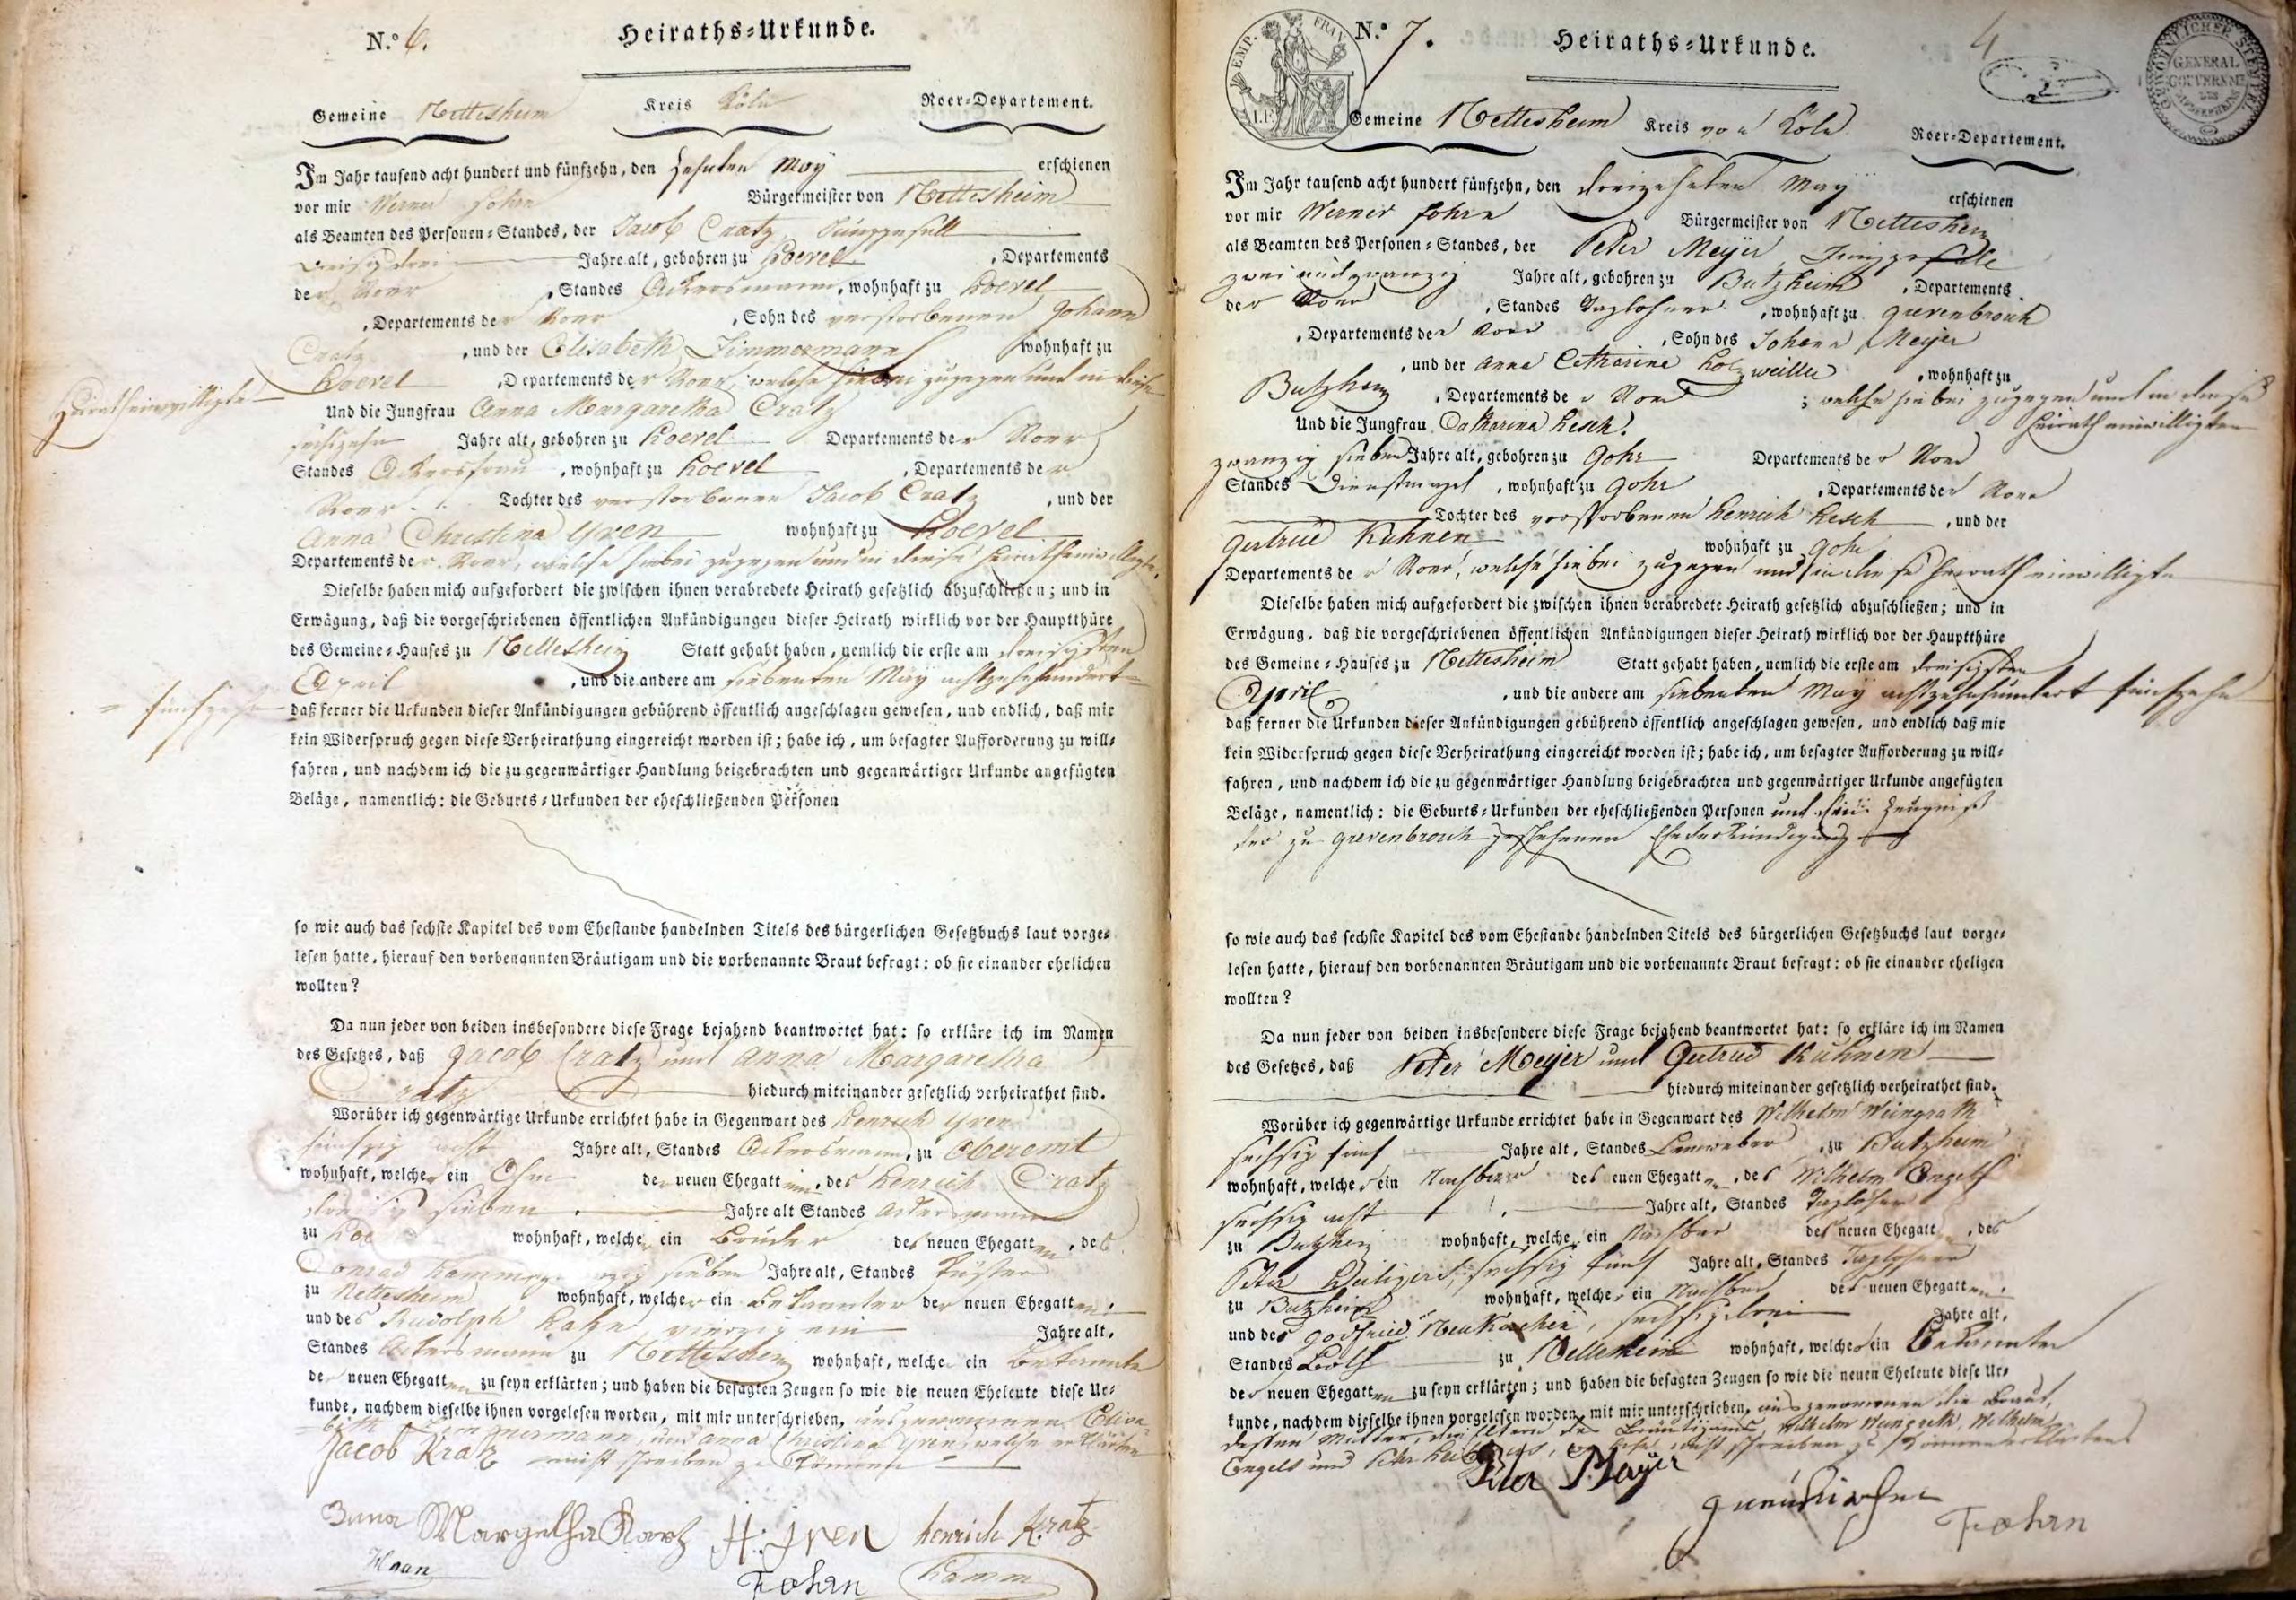 N.º 6.
Heiraths-Urkunde.
Gemeine Nettesheim Kreis Köln Roer-Departement.
Im Jahr tausend acht hundert und fünfzehn, den zehnten May erschienen
vor mir Werner Fohrn Bürgermeister von Nettesheim
als Beamten des Personen-Standes, der Jacob Cratz Junggesell
dreisig drei Jahre alt, gebohren zu Roevel, Departements
der Roer, Standes Ackersmann, wohnhaft zu Roevel
, Departements der Roer, Sohn des verstorbenen Johann
Cratz, und der Elisabeth Zimmermann wohnhaft zu
Roevel, Departements der Roer, welche hiebei zugegen und in diese
Heirath einwilligte
Und die Jungfrau Anna Margaretha Cratz
sechszehn Jahre alt, gebohren zu Roevel Departements der Roer
Standes Ackersfrau, wohnhaft zu Roevel, Departements der
Roer. Tochter des verstorbenen Jacob Cratz, und der
Anna Christina Yven wohnhaft zu Roevel
Departements der Roer, welche hiebei zugegen und in diese Heirath einwilligte.
Dieselbe haben mich aufgefordert die zwischen ihnen verabredete Heirath gesetzlich abzuschließen; und in
Erwägung, daß die vorgeschriebenen öffentlichen Ankündigungen dieser Heirath wirklich vor der Hauptthüre
des Gemeine-Hauses zu Nettesheim Statt gehabt haben, nemlich die erste am dreisigsten
April, und die andere am siebenten May achtzehnhundert
fünfzehn
daß ferner die Urkunden dieser Ankündigungen gebührend öffentlich angeschlagen gewesen, und endlich, daß mir
kein Widerspruch gegen diese Verheirathung eingereicht worden ist; habe ich, um besagter Aufforderung zu will-
fahren, und nachdem ich die zu gegenwärtiger Handlung beigebrachten und gegenwärtiger Urkunde angefügten
Beläge, namentlich: die Geburts-Urkunden der eheschließenden Personen
so wie auch das sechste Kapitel des vom Ehestande handelnden Titels des bürgerlichen Gesetzbuchs laut vorge-
lesen hatte, hierauf den vorbenannten Bräutigam und die vorbenannte Braut befragt: ob sie einander ehelichen
wollten?
Da nun jeder von beiden insbesondere diese Frage bejahend beantwortet hat: so erkläre ich im Namen
des Gesetzes, daß Jacob Cratz und Anna Margaretha
Cratz hiedurch miteinander gesetzlich verheirathet sind.
Worüber ich gegenwärtige Urkunde errichtet habe in Gegenwart des Henrich Yven
fünfzig acht Jahre alt, Standes Ackersmann, zu Oberemt
wohnhaft, welcher ein Ohm der neuen Ehegattinn, des Henrich Cratz
dreisig sieben Jahre alt Standes Ackersmann
zu Roe wohnhaft, welcher ein Bruder des neuen Ehegatten, des
Conrad Hamm sieben Jahre alt, Standes Küster
zu Nettesheim wohnhaft, welcher ein Bekannter der neuen Ehegatten.
und des Rudolph Hahn vierzig ein Jahre alt,
Standes Ackersmann zu Nettesheim wohnhaft, welcher ein Bekannter
der neuen Ehegatten zu seyn erklärten; und haben die besagten Zeugen so wie die neuen Eheleute diese Ur-
kunde, nachdem dieselbe ihnen vorgelesen worden, mit mir unterschrieben, ausgenommen Elisa-
beth Zimmermann, und Anna Christina Yven, welche erklärten
nicht schreiben zu können
Jacob Kratz
Anna Margetha Kartz H: Yven Henrich Kratz
Haan Fohrn Hamm
N.º 7.
Heiraths-Urkunde.
4
2
EMP. FRAN.
GENERAL GOUVERNEME
Gemeine Nettesheim Kreis von Köln Roer-Departement.
Im Jahr tausend acht hundert fünfzehn, den dreizehnten May erschienen
vor mir Werner Fohrn Bürgermeister von Nettesheim
als Beamten des Personen-Standes, der Peter Meyer, Junggeselle
zwei und zwanzig Jahre alt, gebohren zu Butzheim, Departements
der Roer, Standes Taglohner, wohnhaft zu Grevenbroich
, Departements der Roer, Sohn des Johann Meyer
, und der Anna Catharina Holzweiller, wohnhaft zu
Butzheim, Departements der Roer; welche hiebei zugegen und in diese
Heirath einwilligten
Und die Jungfrau Catharina Resch.
zwanzig sieben Jahre alt, gebohren zu Gohr Departements der Roer
Standes Dienstmagd, wohnhaft zu Gohr, Departements der Roer
Tochter des verstorbenen Henrich Resch, und der
Gertrud Kuhnen wohnhaft zu Gohr
Departements der Roer, welche hiebei zugegen und in diese Heirath einwilligte
Dieselbe haben mich aufgefordert die zwischen ihnen verabredete Heirath gesetzlich abzuschließen; und in
Erwägung, daß die vorgeschriebenen öffentlichen Ankündigungen dieser Heirath wirklich vor der Hauptthüre
des Gemeine-Hauses zu Nettesheim Statt gehabt haben, nemlich die erste am dreisigsten
April, und die andere am siebenten May achtzehnhundert fünfzehn
daß ferner die Urkunden dieser Ankündigungen gebührend öffentlich angeschlagen gewesen, und endlich daß mir
kein Widerspruch gegen diese Verheirathung eingereicht worden ist; habe ich, um besagter Aufforderung zu will-
fahren, und nachdem ich die zu gegenwärtiger Handlung beigebrachten und gegenwärtiger Urkunde angefügten
Beläge, namentlich: die Geburts-Urkunden der eheschließenden Personen und Zeugniß
der zu Grevenbroich geschehenen Eheverkündigung
so wie auch das sechste Kapitel des vom Ehestande handelnden Titels des bürgerlichen Gesetzbuchs laut vorge-
lesen hatte, hierauf den vorbenannten Bräutigam und die vorbenannte Braut befragt: ob sie einander eheligen
wollten?
Da nun jeder von beiden insbesondere diese Frage bejahend beantwortet hat: so erkläre ich im Namen
des Gesetzes, daß Peter Meyer und Gertrud Kuhnen
hiedurch miteinander gesetzlich verheirathet sind.
Worüber ich gegenwärtige Urkunde errichtet habe in Gegenwart des Wilhelm Weingrath
sechszig fünf Jahre alt, Standes Leinweber, zu Butzheim
wohnhaft, welcher ein Nachbar des neuen Ehegatten, des Wilhelm Engels
sechszig acht Jahre alt, Standes Taglöhner
zu Butzheim wohnhaft, welcher ein Nachbar des neuen Ehegatten, des
Peter Heiligers, sechszig fünf Jahre alt, Standes Taglohner
zu Butzheim wohnhaft, welcher ein Nachbar des neuen Ehegatten.
und des Godfried Neukirchen, sechszig drei Jahre alt,
Standes zu Nettesheim wohnhaft, welcher ein Bekannter
der neuen Ehegatten zu seyn erklärten; und haben die besagten Zeugen so wie die neuen Eheleute diese Ur-
kunde, nachdem dieselbe ihnen vorgelesen worden, mit mir unterschrieben, ausgenommen die Braut,
dessen Mutter, die Eltern des Bräutigams, Wilhelm Weingrath, Wilhelm
Engels und Peter Heiligers, welche nicht schreiben zu können erklärten
Peter Mayer
Fohrn